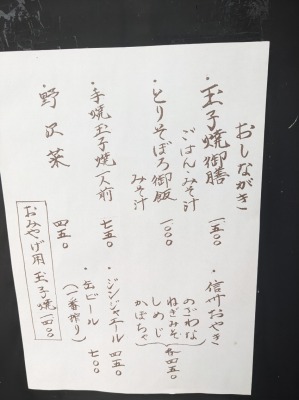 おしながき
・玉子焼御膳 一五〇〇
ごはん・みそ汁
・とりそぼろ御飯 一一〇〇
みそ汁
・手焼玉子焼一人前 七五〇
・野沢菜 四五〇
・信州おやき
のざわな
ねぎみそ
しめじ
かぼちゃ
各四五〇
・ジンジャエール 四五〇
・缶ビール 七〇〇
(一番搾り)
おみやげ用 玉子焼 一四〇〇